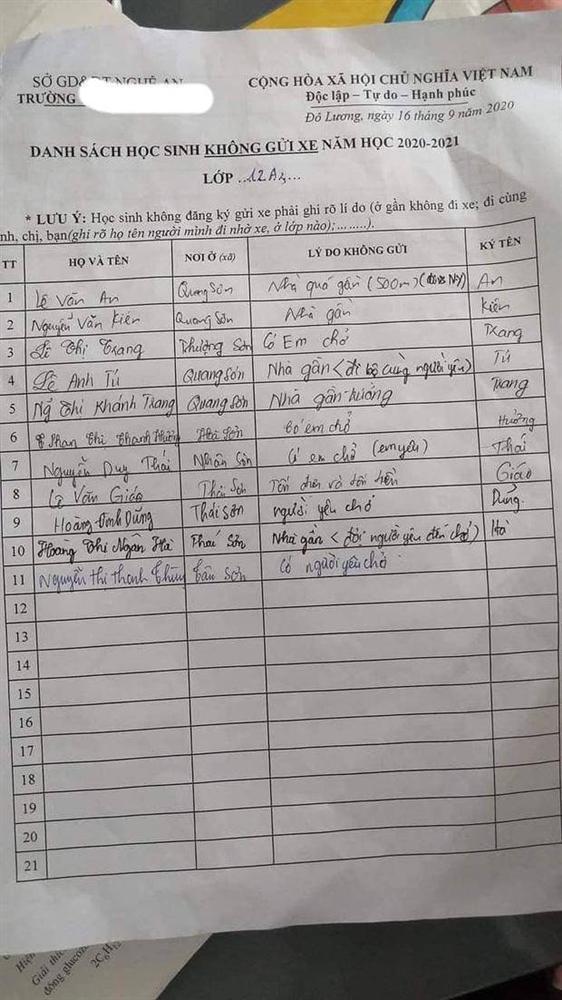 SỞ GD& ĐT NGHỆ AN
TRƯỜNG
CỘNG HÒA XÃ HỘI CHỦ NGHĨA VIỆT NAM
Độc lập – Tự do – Hạnh phúc
Đô Lương, ngày 16 tháng 9 năm 2020
DANH SÁCH HỌC SINH KHÔNG GỬI XE NĂM HỌC 2020-2021
LỚP ...12A3...
* LƯU Ý: Học sinh không đăng ký gửi xe phải ghi rõ lí do (ở gần không đi xe; đi cùng
nh, chị, bạn(ghi rõ họ tên người mình đi nhờ xe, ở lớp nào);........).
TT HỌ VÀ TÊN NƠI Ở (xã) LÝ DO KHÔNG GỬI KÝ TÊN
1 Lê Văn An Quang Sơn Nhà quá gần (500m) An
2 Nguyễn Văn Kiên Quang Sơn Nhà gần Kiên
3 Thị Trang Thượng Sơn Có Em chở Trang
4 Lê Anh Tú Quang Sơn Nhà gần < đi bộ cùng người yêu) Tú
5 Ng Thị Khánh Trang Quang Sơn Nhà gần Trang
6 Phan Thị Thanh có em chở Hường
7 Nguyễn Duy Thái Nhân Sơn Có em chở (em yêu) Thái
8 Lê Văn Giáo Thái Sơn Tốn điện và tốn tiền Giáo
9 Hoàng Đình Dũng Thái Sơn người yêu chở Dũng
10 Hoàng Thị Ngân Hà Thái Sơn Nhà gần < đợi người yêu đến chở) Hà
11 Nguyễn thị thanh Tân Sơn Có người yêu chở
12
13
14
15
16
17
18
19
20
21
Hiệ
Giải thí
đông gluco